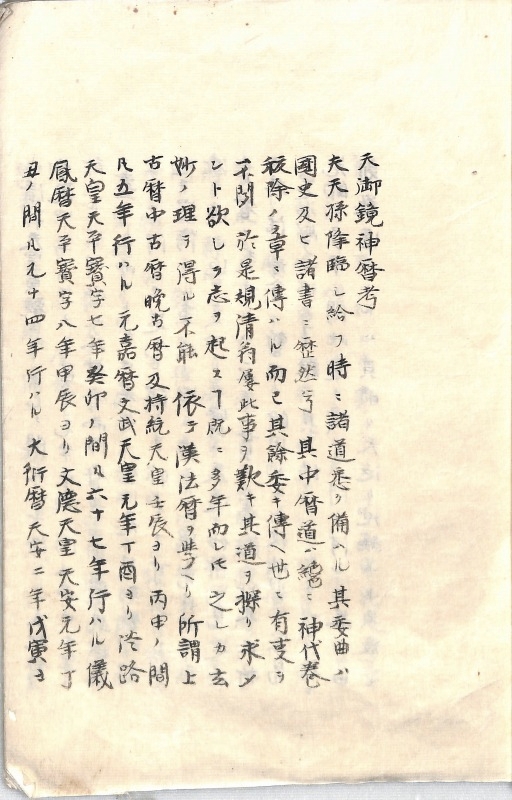 天御鏡神暦考
夫天孫降臨シ給フ時ニ諸道悉ク備ハル其委曲ハ
國史及ヒ諸書ニ歴然タリ其中暦道ハ纔ニ神代巻
祓除ノ章ニ傳ハル而已其餘委キ傳ヘ世ニ有事ヲ
不聞於是規清翁屢此事ヲ歎キ其道ヲ探リ求メ
ント欲シヲ志ヲ起ス丅既ニ多年而シ𪜈之レカ玄
妙ノ理ヲ得ル不能依テ漢法暦ヲ學ヘリ所謂上
古暦中古暦晩古暦及持統天皇壬辰ヨリ丙申ノ間
凡五年行ハル元嘉暦文武天皇元年丁酉ヨリ淡路
天皇天平寳字七年癸卯ノ間凡六十七年行ハル儀
鳳暦天平寳字八年甲辰ヨリ文德天皇天安元年丁
丑ノ間凡九十四年行ハル大衍暦天安二年戊寅ヨ